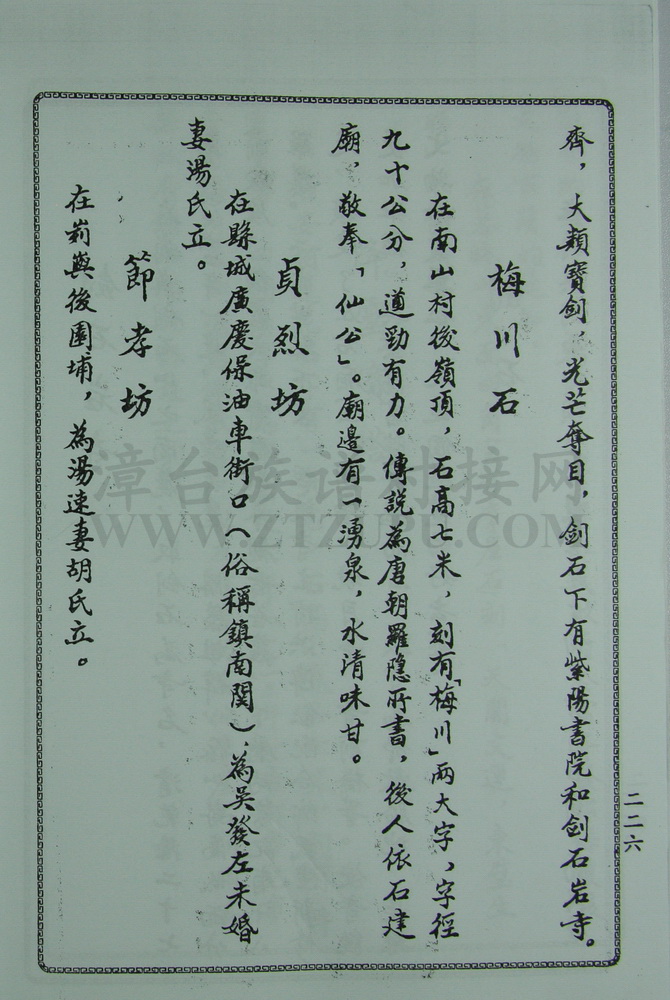 齊，大類寶劍，光芒奪目，劍石下有紫陽書院和劍石岩寺。
梅川石
在南山村後嶺頂，石高七米，刻有「梅川」兩大字，字徑
九十公分，遒勁有力。傳說為唐朝羅隐所書，後人依石建
廟，敬奉「仙公」。廟邊有一湧泉，水清味甘。
貞烈坊
在縣城廣慶保油車街口（俗稱鎮南関），為吳發左未婚
妻湯氏立。
節孝坊
在莿輿後園埔，為湯速妻胡氏立。
二二六
漳台族谱对接网
WWW.ZTZUPU.COM